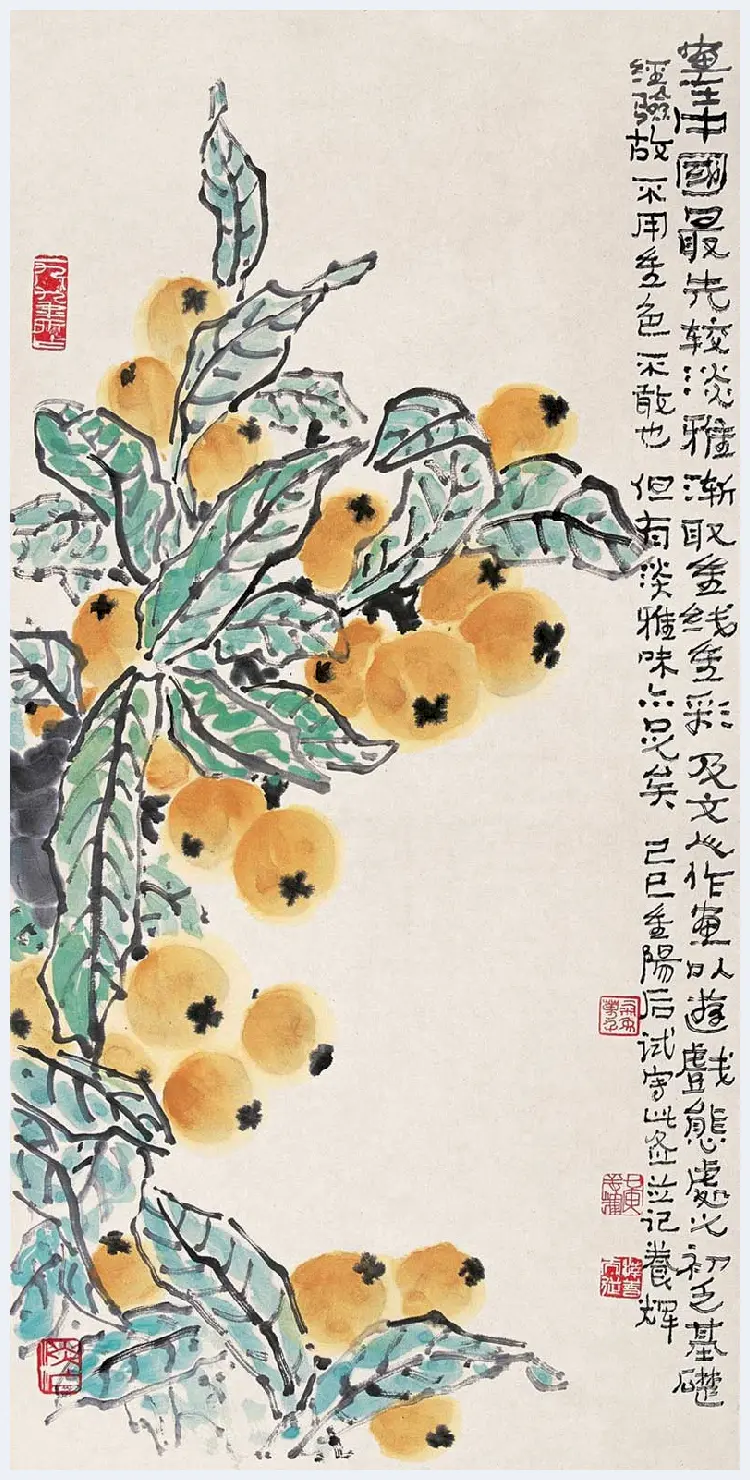 畫中國最先较淡雅渐取重线重彩及文人作畫以遊戲態處之初乏基礎
經驗故不用重色不敢也但有淡雅味亦足矣己巳重陽后试写此並记養辉